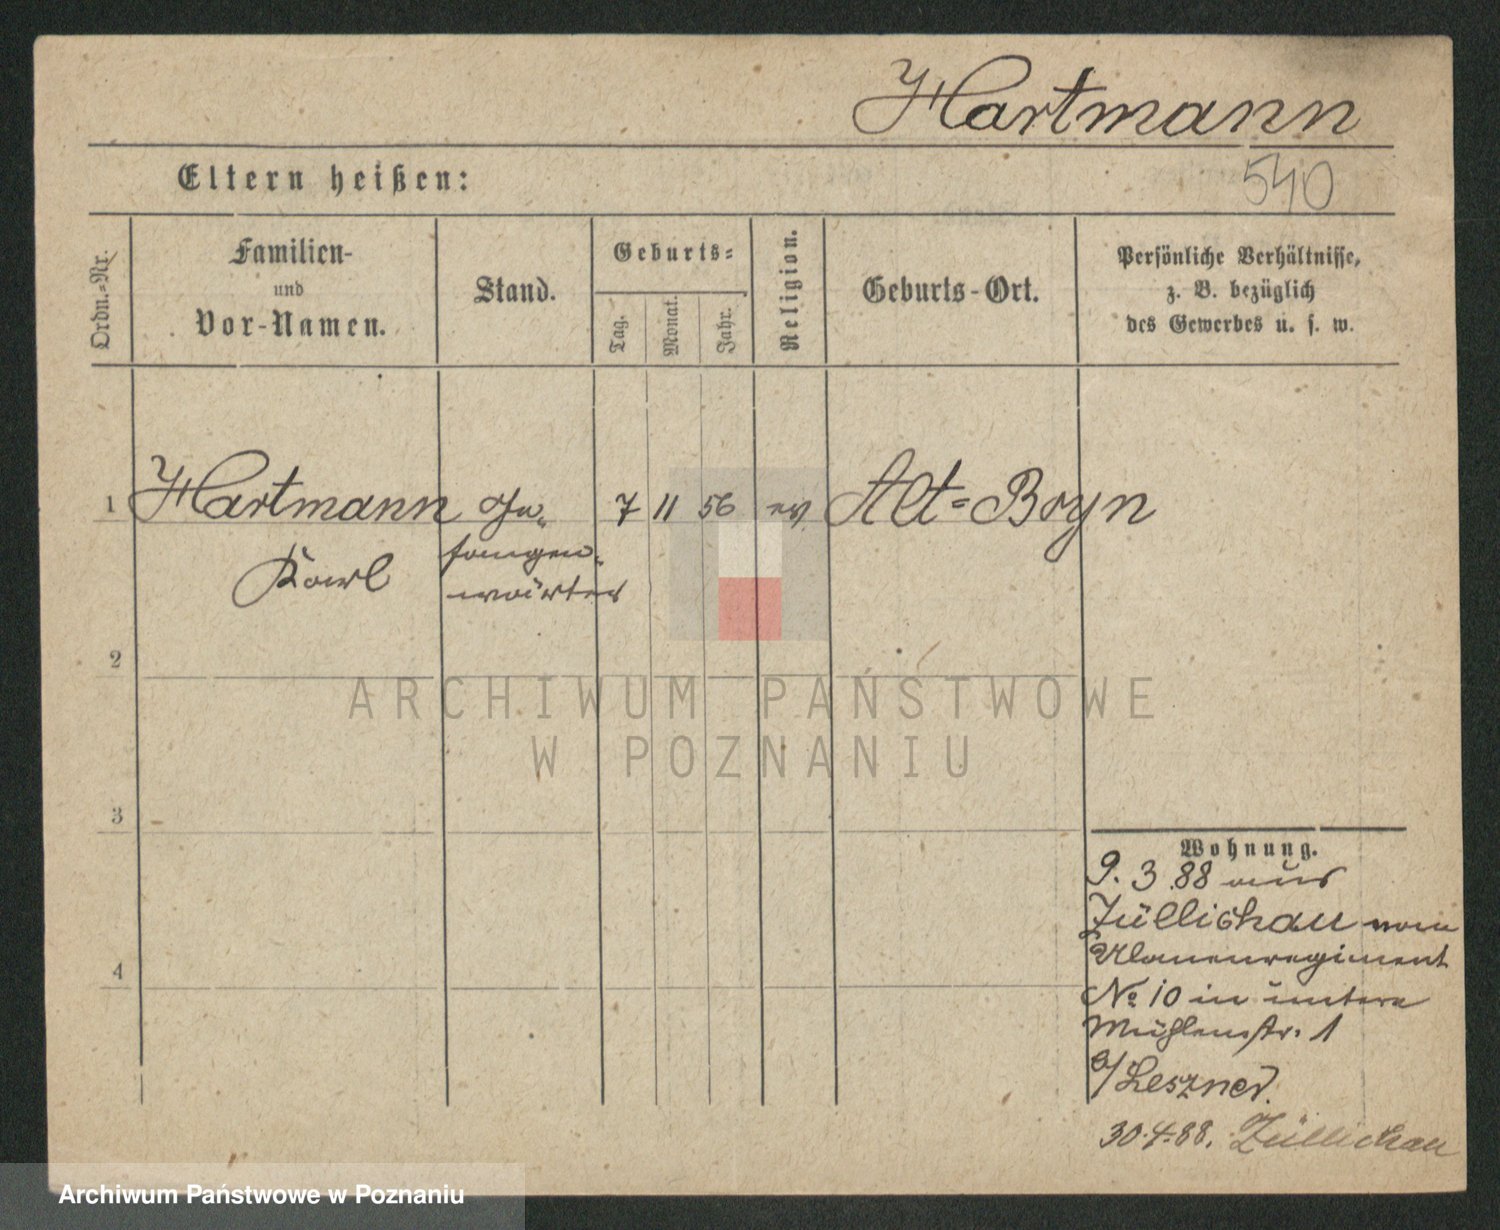 Hartmann
540
Eltern heißen:
Ordn.-Nr.
Familien-
und
Vor-Namen.
Stand.
Geburts-
Tag.
Monat.
Jahr.
Religion.
Geburts-Ort.
Persönliche Verhältnisse,
z. B. bezüglich
des Gewerbes u. s. w.
1 Hartmann Ge- 7 11 56 ev Alt-Boyn
Karl fangen-
wärter
2
ARCHIWUM PAŃSTWOWE
W POZNANIU
3
4
Wohnung.
9. 3. 88 aus
Züllichau vom
Ulanenregiment
No 10 in untere
Mühlenstr. 1
b/ Leszner.
30.4.88. Züllichau
Archiwum Państwowe w Poznaniu